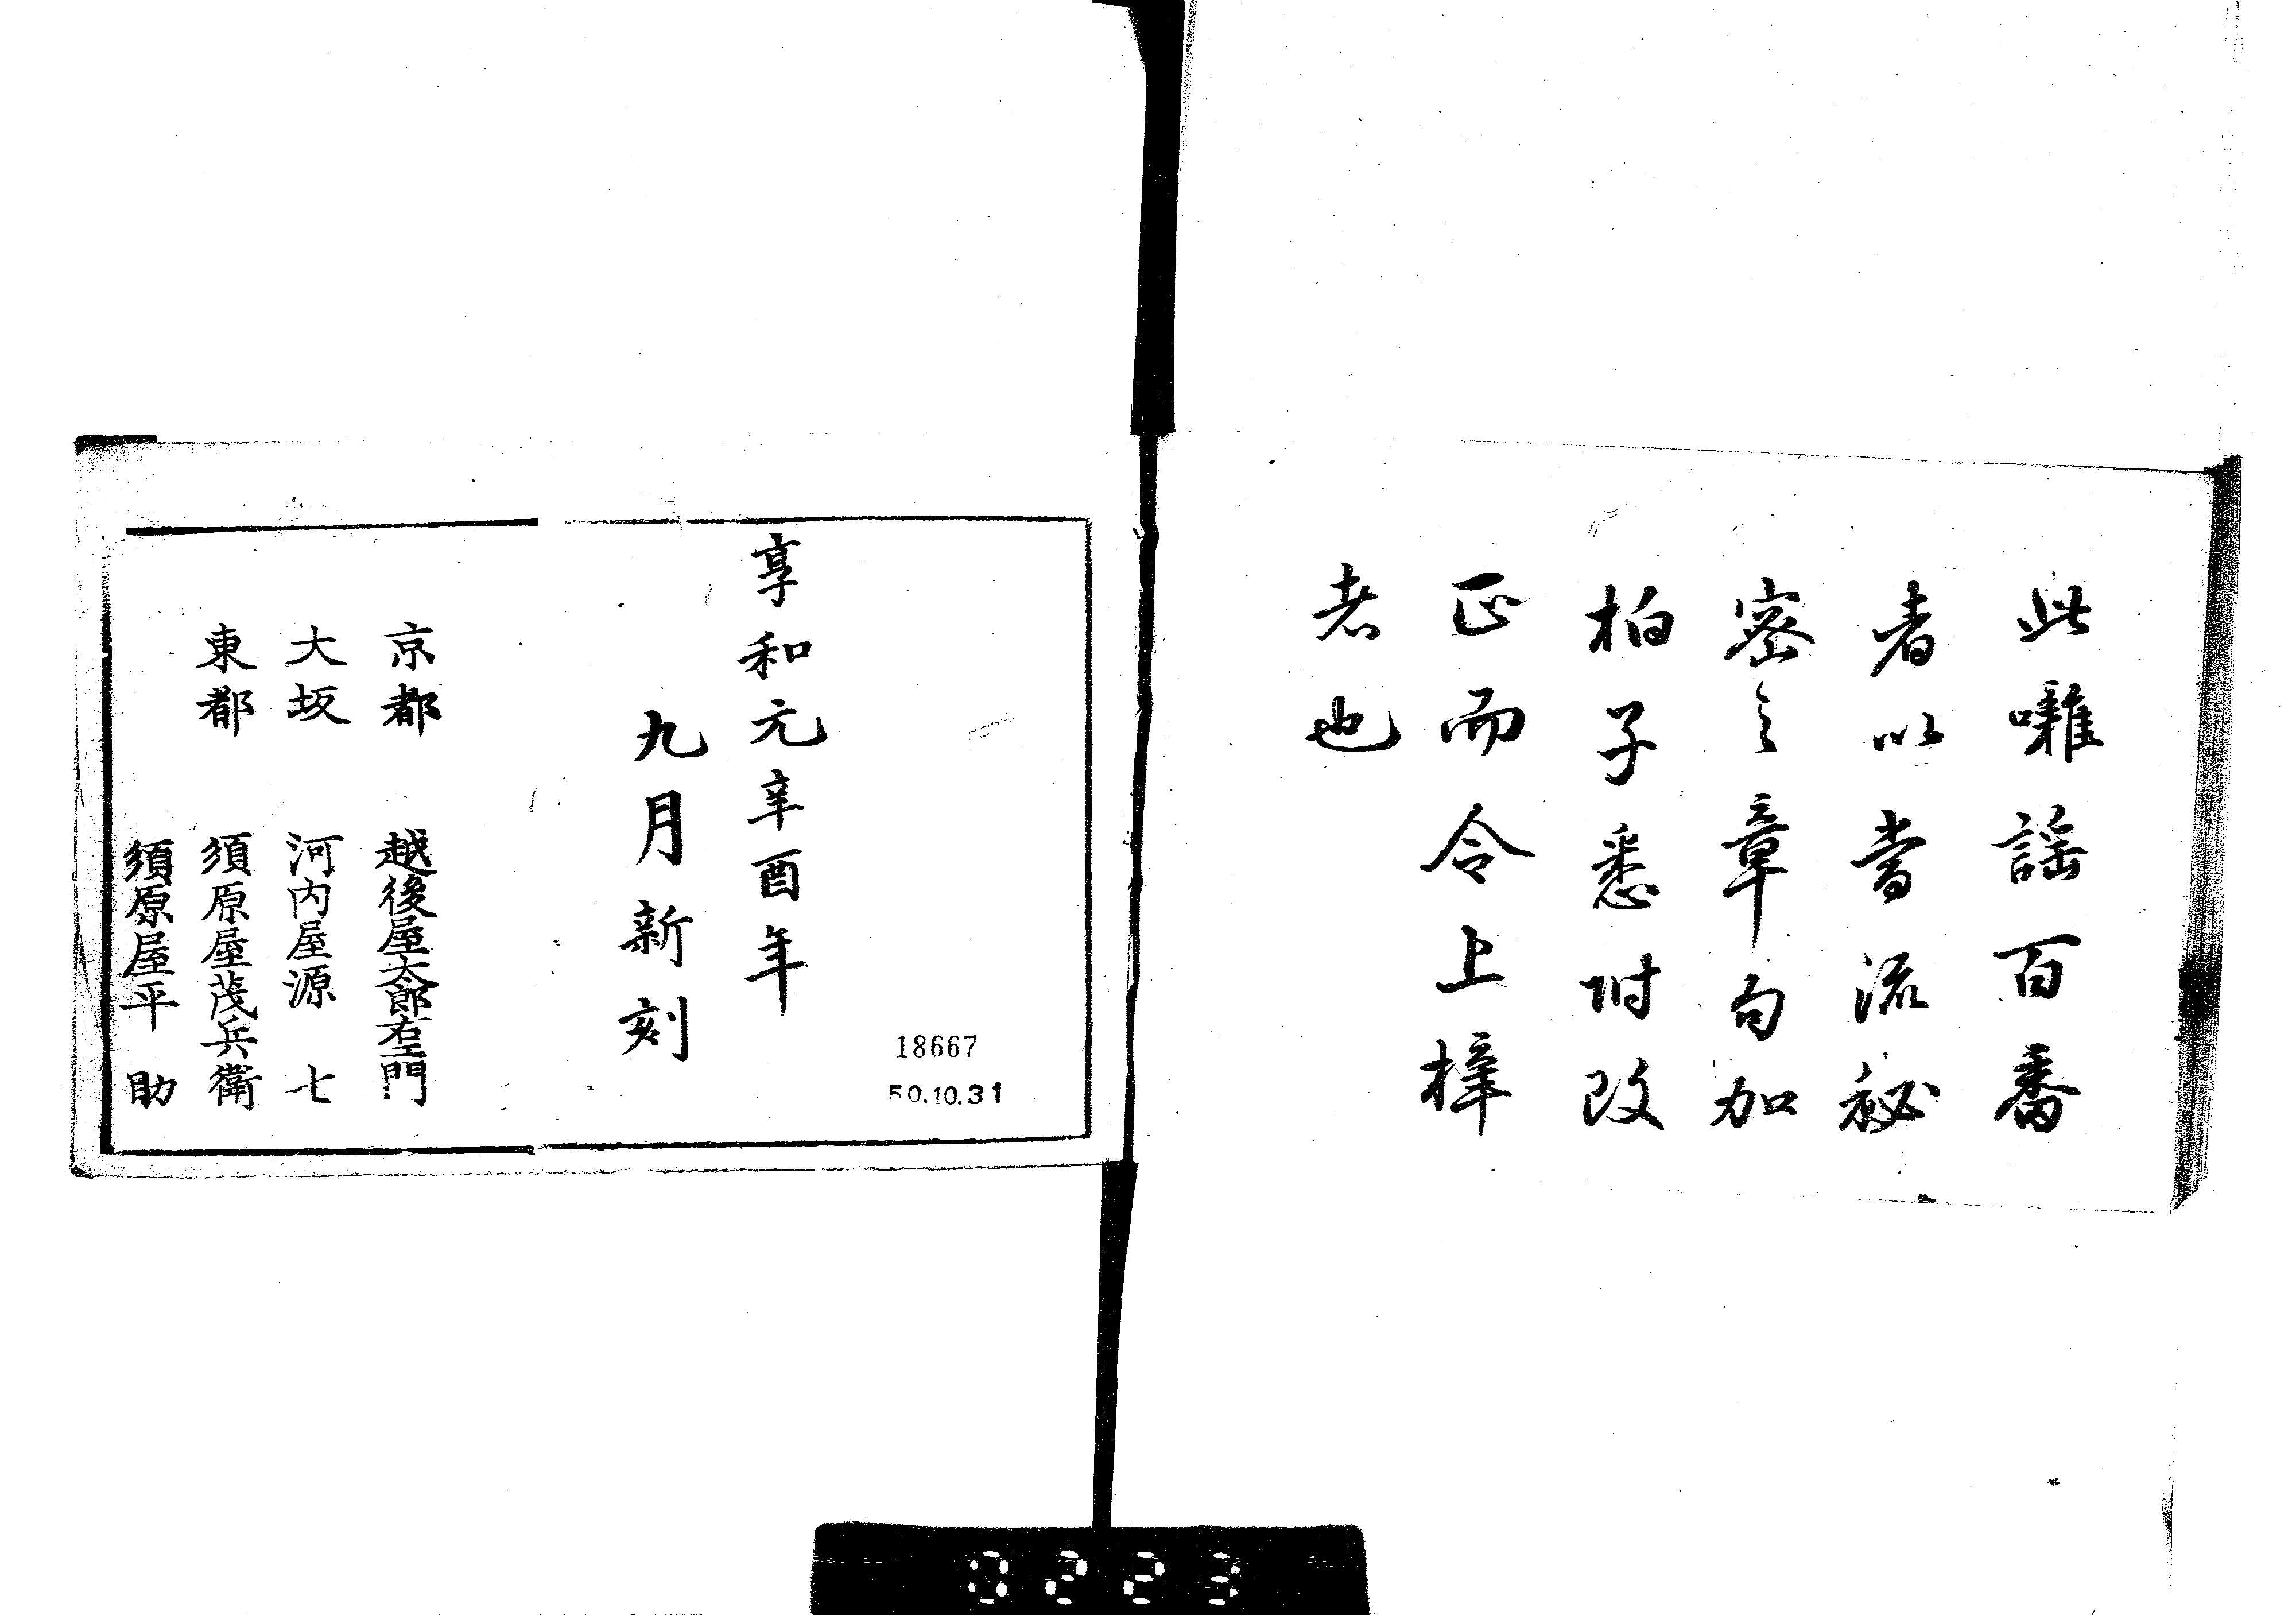 此囃謡百番
者以當流秘
密之章句加
拍子悉附改
正而令上梓
者也
享和元辛酉年
九月新刻
18667
50.10.31
京都 越後屋太郎右衛門
大坂 河内屋源七
東都 須原屋茂兵衛
須原屋平助
0223